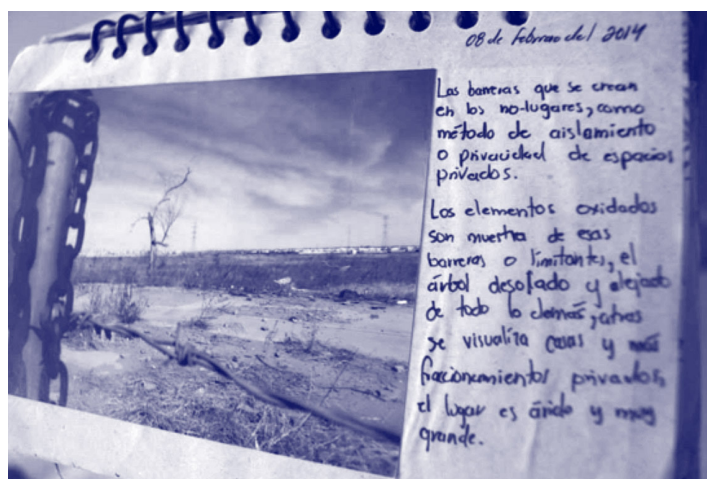 08 de febrero del 2014
Las barreras que se crean
en los no-lugares, como
método de aislamiento
o privacidad de espacios
privados.
Los elementos oxidados
son muestra de esas
barreras o limitantes, el
árbol desolado y alejado
de todo lo demás, atras
se visualiza casas y más
fraccionamientos privados,
el lugar es árido y muy
grande.